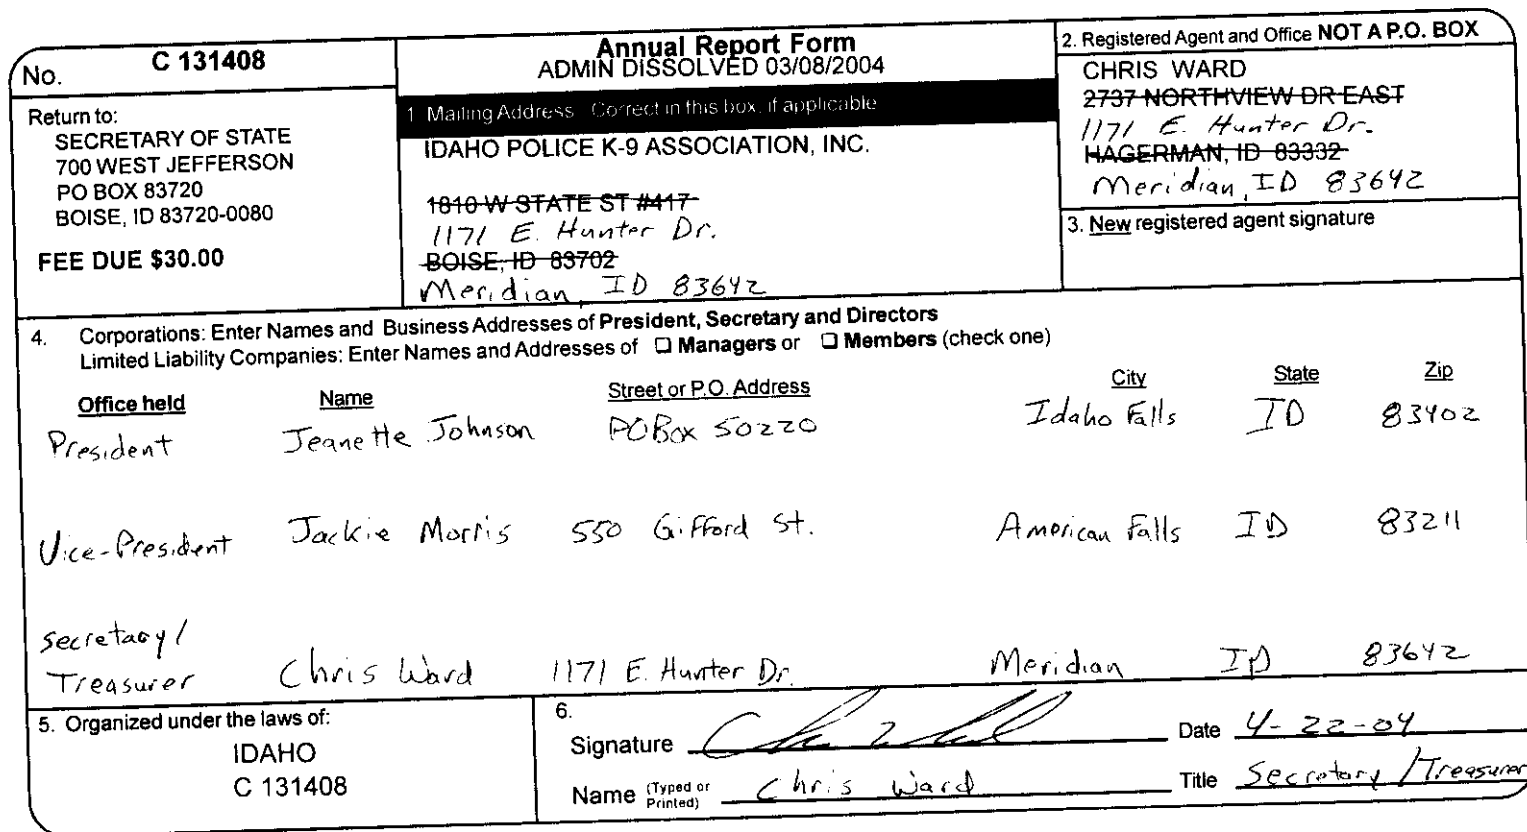 No. C 131408
Return to:
SECRETARY OF STATE
700 WEST JEFFERSON
PO BOX 83720
BOISE, ID 83720-0080
FEE DUE $30.00
Annual Report Form
ADMIN DISSOLVED 03/08/2004
1 Mailing Address Correct in this box, if applicable
IDAHO POLICE K-9 ASSOCIATION, INC.
1810 W STATE ST #417
1171 E. Hunter Dr.
BOISE, ID 83702
Meridian, ID 83642
2. Registered Agent and Office NOT A P.O. BOX
CHRIS WARD
2737 NORTHVIEW DR EAST
1171 E. Hunter Dr.
HAGERMAN, ID 83332
Meridian, ID 83642
3. New registered agent signature
4. Corporations: Enter Names and Business Addresses of President, Secretary and Directors
Limited Liability Companies: Enter Names and Addresses of ❑ Managers or ❑ Members (check one)
Office held Name Street or P.O. Address City State Zip
President Jeanette Johnson PO Box 50220 Idaho Falls ID 83402
Vice-President Jackie Morris 550 Gifford St. American Falls ID 83211
Secretary/
Treasurer Chris Ward 1171 E. Hunter Dr. Meridian ID 83642
5. Organized under the laws of:
IDAHO
C 131408
6.
Signature Date 4-22-04
Name (Typed or Printed) Chris Ward Title Secretary/Treasurer